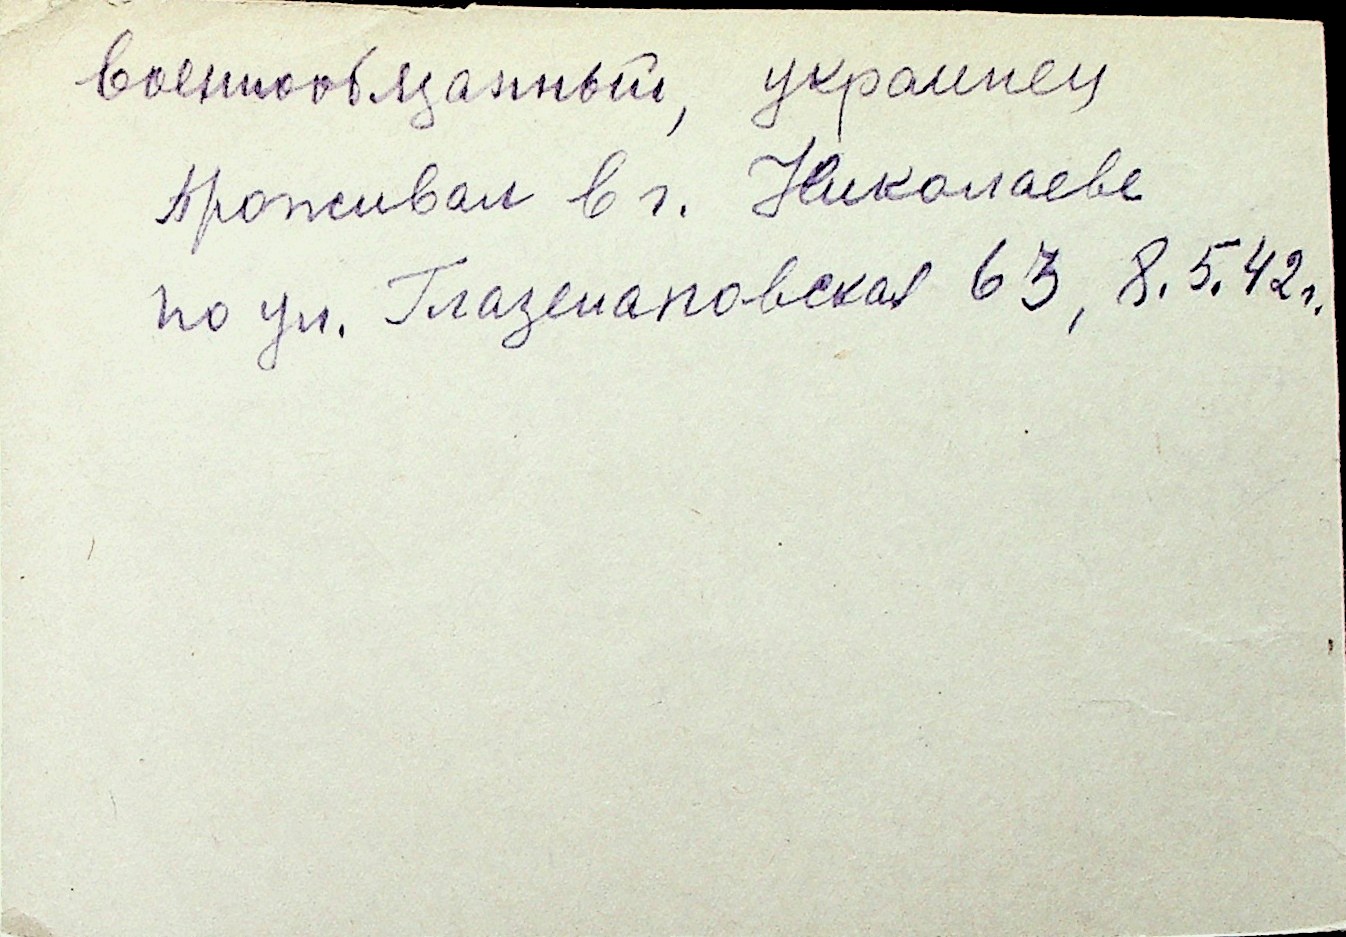 Военнообязанный, украинец
проживал в г. Николаеве
по ул. Глазенаповская 63, 8.5.42г.